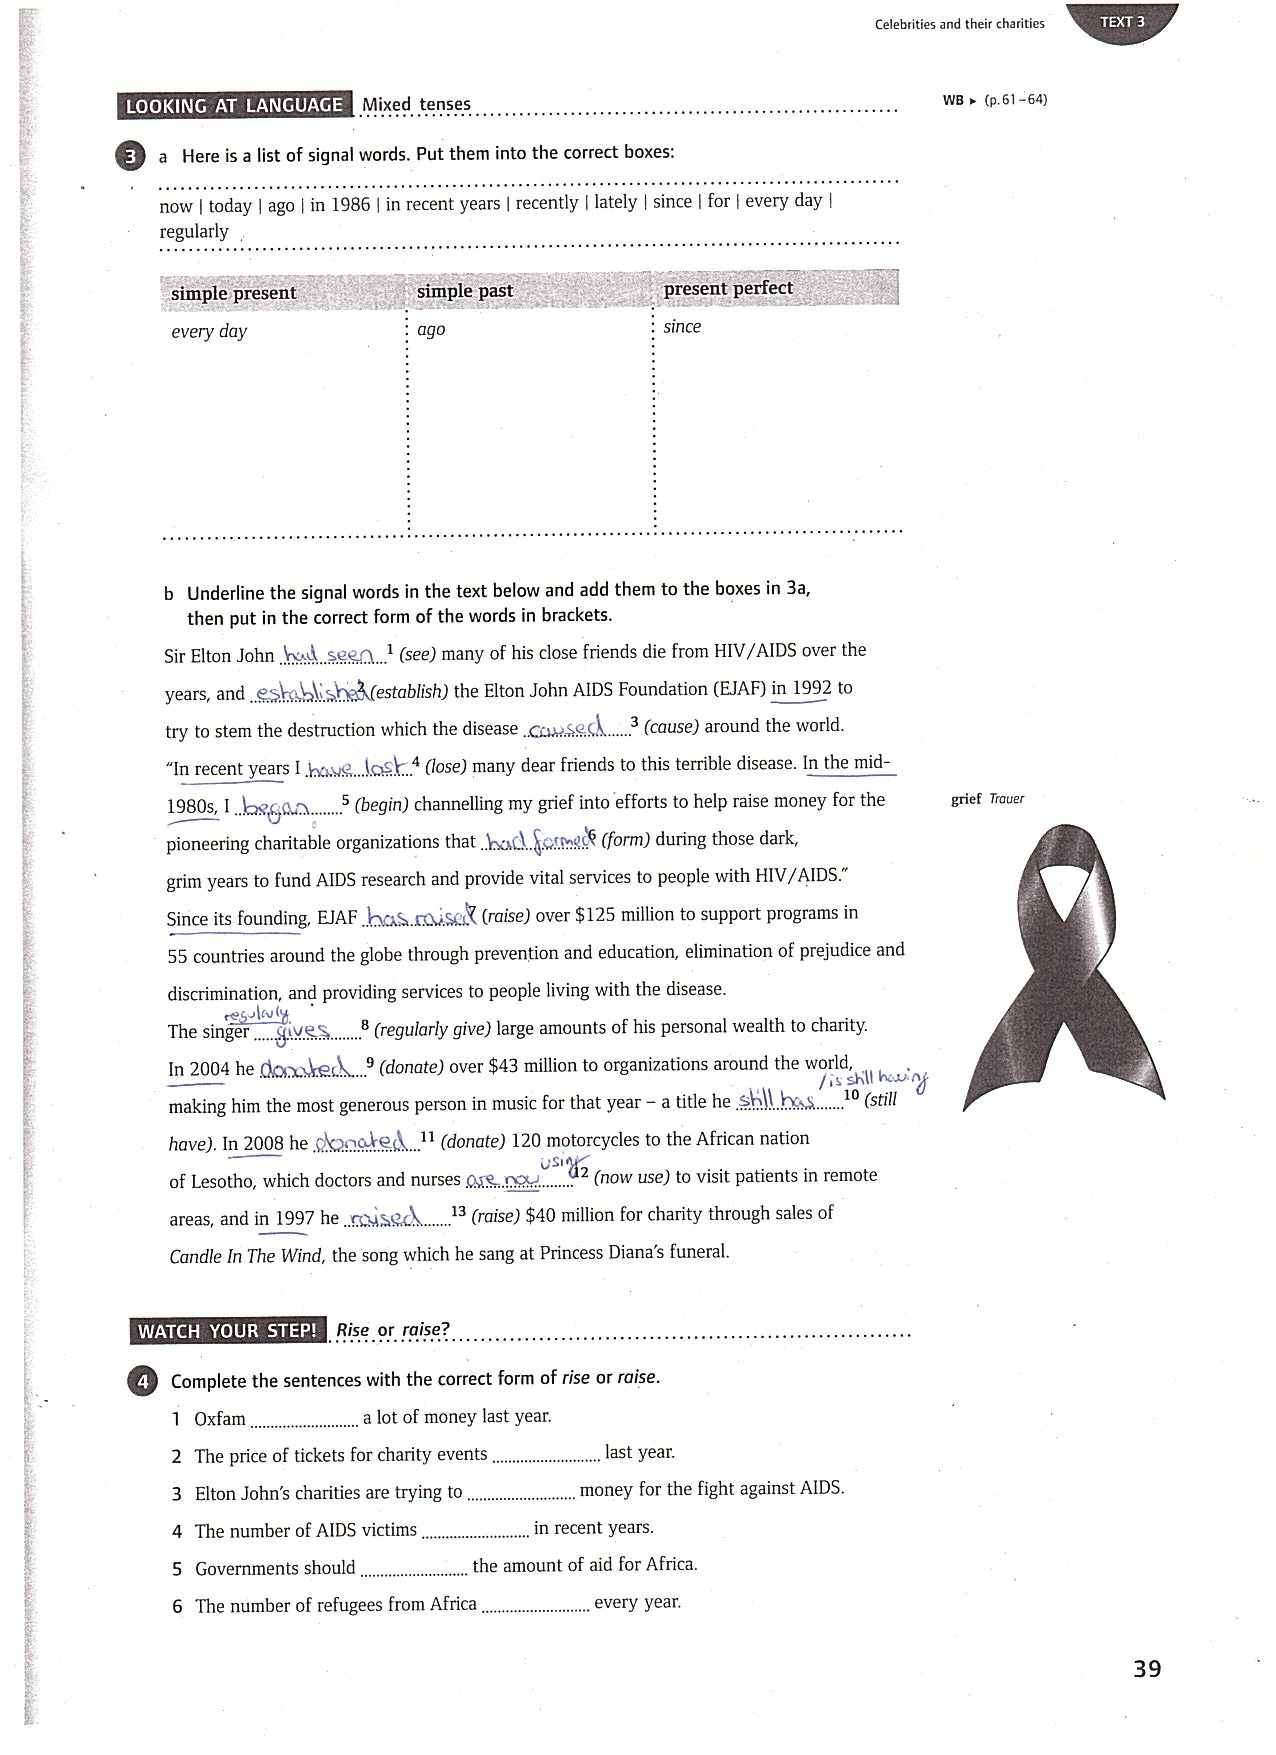 Celebrities and their charities TEXT 3
LOOKING AT LANGUAGE Mixed tenses
WB ▸ (p.61–64)
3 a Here is a list of signal words. Put them into the correct boxes:
now | today | ago | in 1986 | in recent years | recently | lately | since | for | every day |
regularly
simple present simple past present perfect
every day ago since
b Underline the signal words in the text below and add them to the boxes in 3a,
then put in the correct form of the words in brackets.
Sir Elton John had seen 1 (see) many of his close friends die from HIV/AIDS over the
years, and established 2 (establish) the Elton John AIDS Foundation (EJAF) in 1992 to
try to stem the destruction which the disease caused 3 (cause) around the world.
“In recent years I have lost 4 (lose) many dear friends to this terrible disease. In the mid-
1980s, I began 5 (begin) channelling my grief into efforts to help raise money for the
grief Trauer
pioneering charitable organizations that had formed 6 (form) during those dark,
grim years to fund AIDS research and provide vital services to people with HIV/AIDS.”
Since its founding, EJAF has raised 7 (raise) over $125 million to support programs in
55 countries around the globe through prevention and education, elimination of prejudice and
discrimination, and providing services to people living with the disease.
regularly
The singer gives 8 (regularly give) large amounts of his personal wealth to charity.
In 2004 he donated 9 (donate) over $43 million to organizations around the world,
/is still having
making him the most generous person in music for that year – a title he still has 10 (still
have). In 2008 he donated 11 (donate) 120 motorcycles to the African nation
using
of Lesotho, which doctors and nurses are now 12 (now use) to visit patients in remote
areas, and in 1997 he raised 13 (raise) $40 million for charity through sales of
Candle In The Wind, the song which he sang at Princess Diana’s funeral.
WATCH YOUR STEP! Rise or raise?
4 Complete the sentences with the correct form of rise or raise.
1 Oxfam ........................... a lot of money last year.
2 The price of tickets for charity events ........................... last year.
3 Elton John’s charities are trying to ........................... money for the fight against AIDS.
4 The number of AIDS victims ........................... in recent years.
5 Governments should ........................... the amount of aid for Africa.
6 The number of refugees from Africa ........................... every year.
39